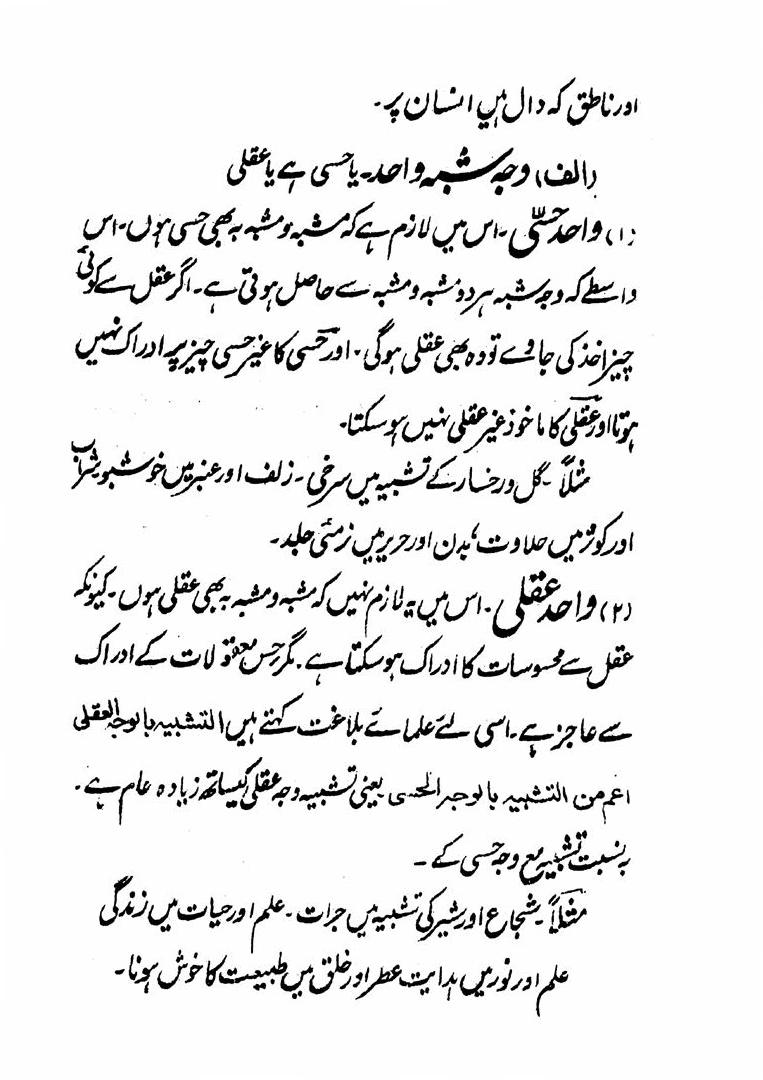 اور ناطق کہ دال ہیں انسان پر۔
(الف) وجہ شبہ واحد۔ یا حسی ہے یا عقلی
(۱) واحد حسّی۔ اس میں لازم ہے کہ مشبہ و مشبہ بہ بھی حسی ہوں۔ اس
واسطے کہ وجہ شبہ ہر دو مشبہ و مشبہ سے حاصل ہوتی ہے۔ اگر عقل سے کوئی
چیز اخذ کی جاوے تو وہ بھی عقلی ہوگی۔ اور حسی کا غیر حسی چیز پر ادراک نہیں
ہوتا اور عقلی کا ماخوذ غیر عقلی نہیں ہو سکتا۔
مثلاً۔ گل و رخسار کے تشبیہ میں سرخی۔ زلف اور عنبر میں خوشبو شراب
اور کوثر میں حلاوت، بدن اور حریر میں نرمئی جلد۔
(۲) واحد عقلی۔ اس میں یہ لازم نہیں کہ مشبہ و مشبہ بہ بھی عقلی ہوں۔ کیونکہ
عقل سے محسوسات کا ادراک ہو سکتا ہے۔ مگر حِس معقولات کے ادراک
سے عاجز ہے۔ اسی لئے علمائے بلاغت کہتے ہیں التشبیہ بالوجہ العقلی
اعم من التشبیہ بالوجہ الحسی یعنی تشبیہ وجہ عقلی کیساتھ زیادہ عام ہے۔
بہ نسبت تشبیہ مع وجہ حسی کے۔
مثلاً۔ شجاع اور شیر کی تشبیہ میں جرات۔ علم اور حیات میں زندگی
علم اور نور میں ہدایت عطر اور خلق میں طبیعت کا خوش ہونا۔